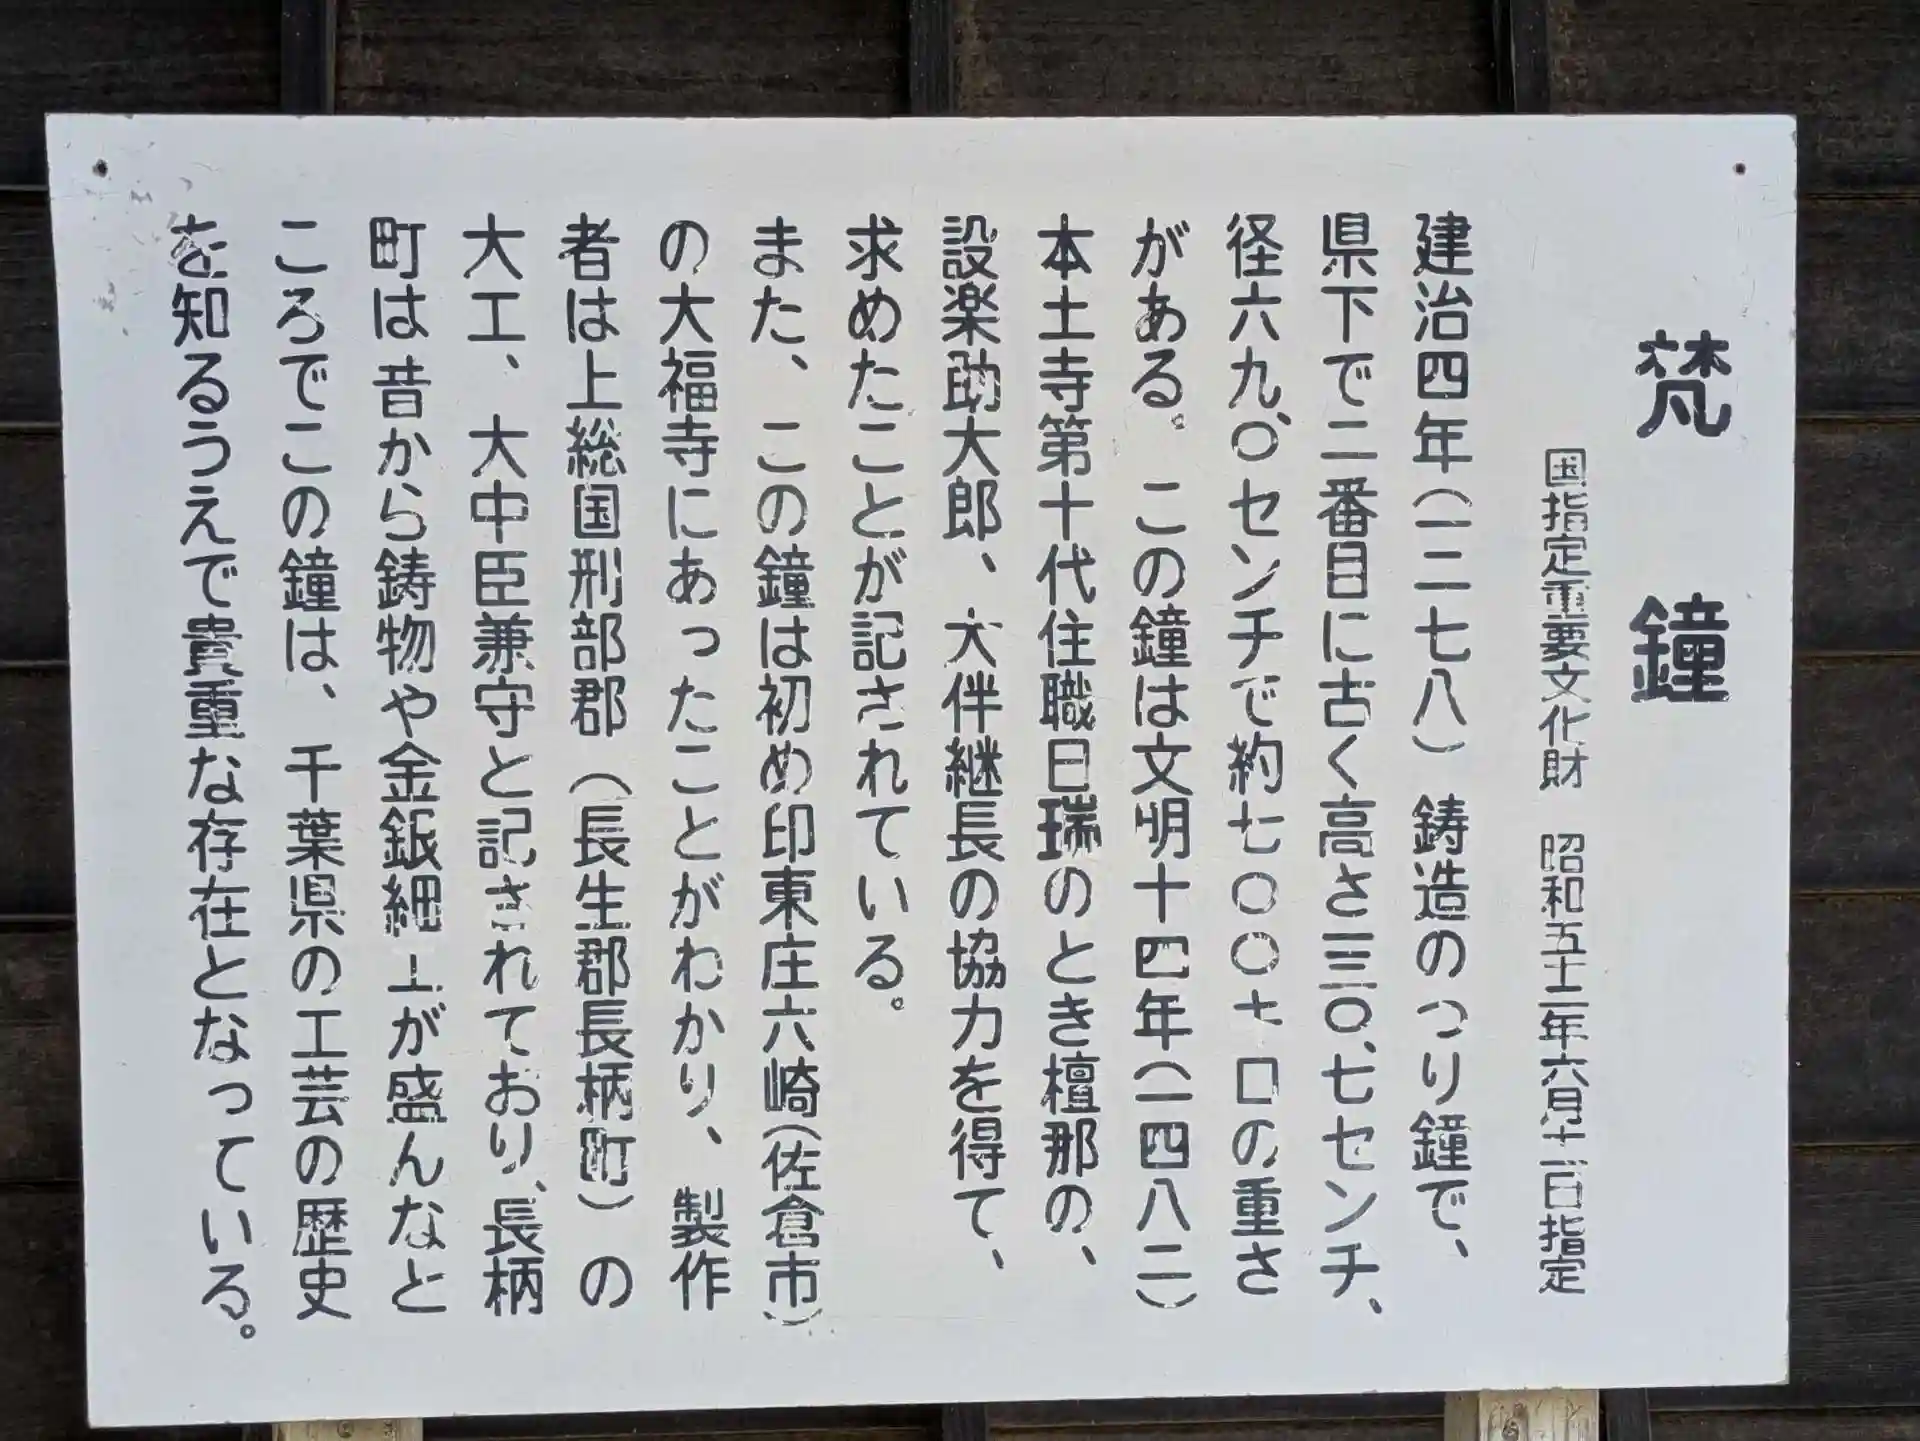 梵鐘
国指定重要文化財　昭和五十二年六月十一日指定
建治四年（一二七八）鋳造のつり鐘で、
県下で二番目に古く高さ一三〇、七センチ、
径六九、〇センチで約七〇〇キロの重さ
がある。この鐘は文明十四年（一四八二）
本土寺第十代住職日瑞のとき檀那の、
設楽助太郎、大伴継長の協力を得て、
求めたことが記されている。
また、この鐘は初め印東庄六崎（佐倉市）
の大福寺にあったことがわかり、製作
者は上総国刑部郡（長生郡長柄町）の
大工、大中臣兼守と記されており、長柄
町は昔から鋳物や金銀細工が盛んなと
ころでこの鐘は、千葉県の工芸の歴史
を知るうえで貴重な存在となっている。